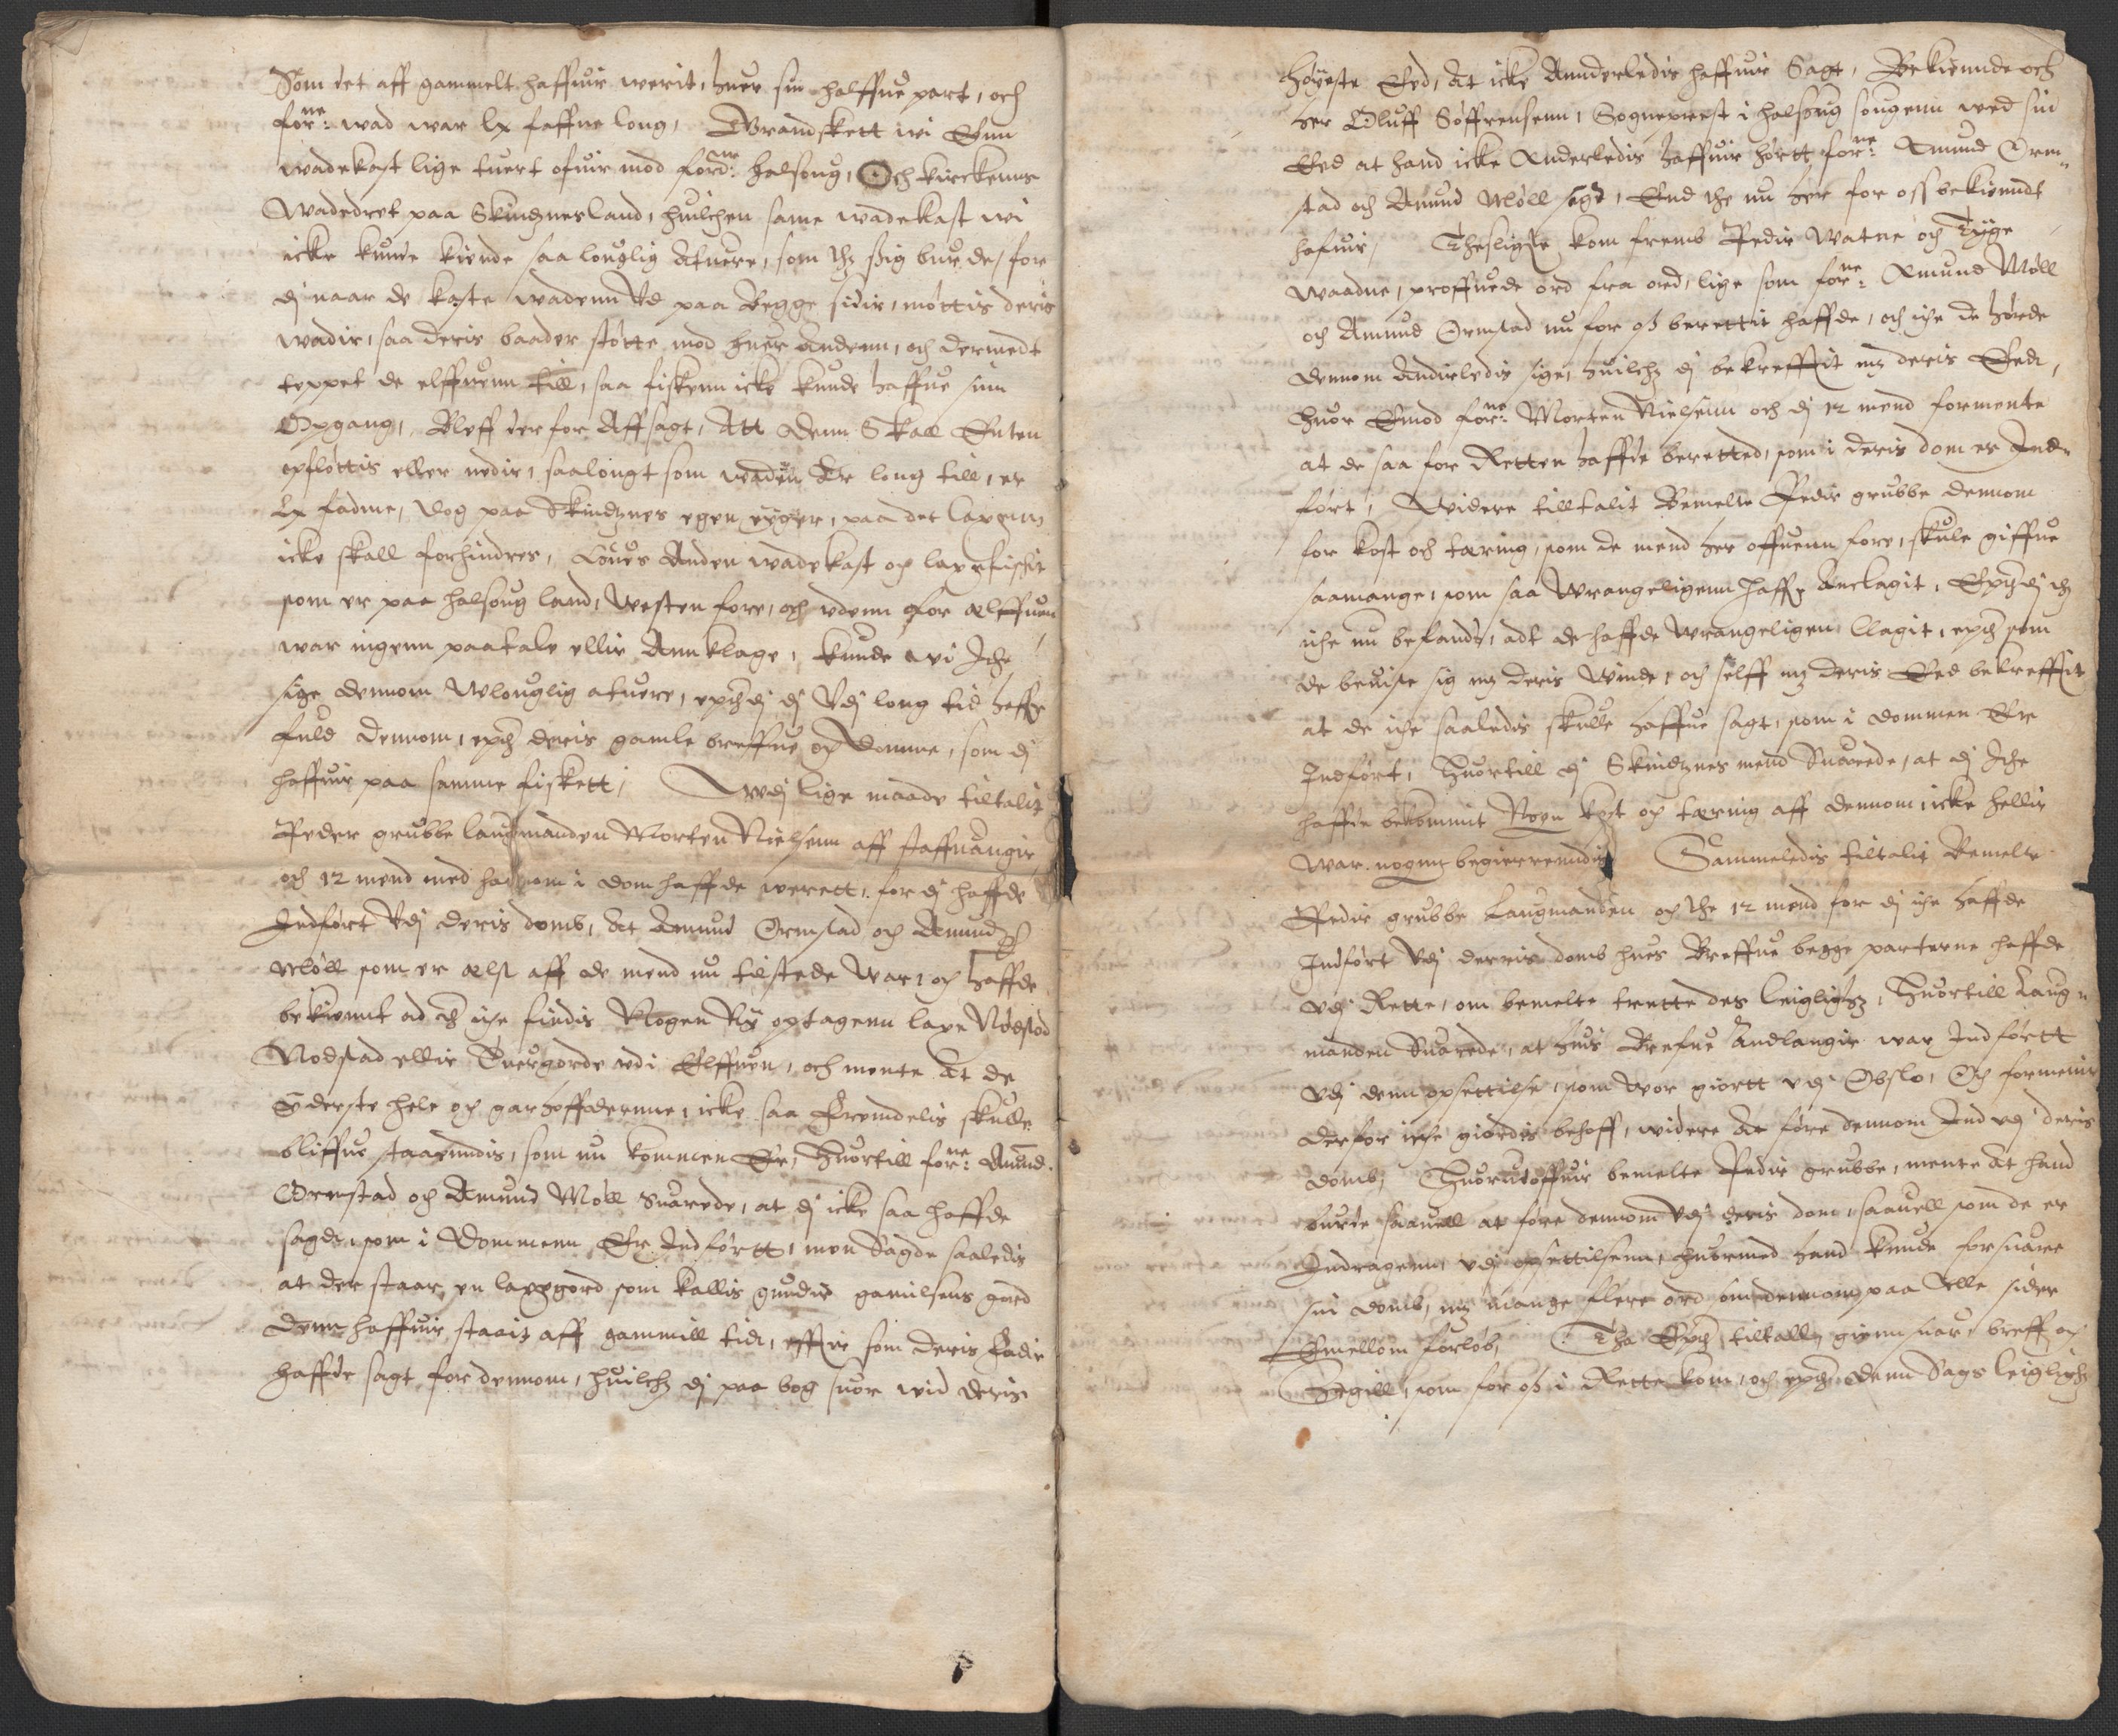 Som det aff gammelt haffuir werit, huer sin halffue part, och
forne: wad war lx faffne long, Grandskett wi Enn
wadekast lige tuert ofuir mod fordne: Halsoug, Och kirckenns
Wadedret paa Skindznes land, huilchen same wadekast wi
icke kunde kiende saa louglig Atuere, som thz sig burde, for
dj naar de kaste wadenn Vd paa Begge sidir, møttis deris
wadir, saa deris baader støtte mod huer Andenn, och dermedt
teppet de elffuenn till, saa fiskenn icke kunde haffue sin
Opgang, Bleff derfor Affsagt, Att denn Skall Enten
opfløttis eller nedir, saalongt som waden Er long till, er
Lx fadme, dog paa Skindznes egen eyger, paa det laxenn
icke skall forhindres, Anden wadekast och laxefiskir
som er paa halsoug land, Westen fore, och vdenn for elffuen
war ingenn paatale ellir Annklage, kunde wi Iche
sige dennom Wlouglig atuere, epther dj Vdj long tid haffe
fuld dennom, epther deris gamle breffue och Domme, som dj
haffuir paa samme fiskett, Wdj lige maade tiltalit
Peder grubbe laugmanden Morten Nielsenn aff staffuangir,
och 12 mend med hannom i dom haffde werett, for dj haffde
Indført Vdj deris domb, At Amund Ormstad och Amund
Møll som er elst aff de mend nu tilstede War, och haffde
bekiennt ad ther iche findis Nogen Ny optagenn laxe Nodstod
Nodstad ellir Tuergorde vdi Elffuen, och mente At de
Ederste hele och garhoffdernne, icke saa Fremdelis skulle
bliffue staaendis, som nu kommen Er, Huortill forne: Amund
Ormstad och Amund Møll Suarede, at dj icke saa haffde
sagdt, som i Dommenn Er Indførtt, men Sagde saaledis
at der staar en laxegord som kallis gunder gamilsens gord
denn haffuir staait aff gammill tid, effter som deris Fadir
haffde sagt for dennom, huilchz dj paa bog suor wid deris
Høyeste Eed, At icke Annderledis haffuir Sagt, Bekiennde och
her Oluff Søffrensenn, Sogneprest i halsoug sougenn wed sin
Eed at hand icke Anderledis haffuir hørtt forne: Amund Orm-
stad och Amund Møll sige, End the nu her for oss bekiendt
hafuir, Thesligste kom fremb Pedir Watne och Tyge
waadne, proffuede ord fra ord, lige som forne: Amund Møll
och Amund Ormstad nu for oss berettit haffde, och iche de hørde
dennom Andirledis sige, huilchz dj bekrefftit mz deris Eed,
Huor Emod forne: Morten Nielsenn och dj 12 mend formente
at de saa for Retten haffde beretted, som i deris dom er Ind-
ført, Widere tilltalit Bemelte Pedir grubbe dennom
for kost och tæring, som de mend her offuenn fore, skule giffue
saamange, som saa Wrangeligenn haffr Anclagit, Epther dj thz
iche nu befands, adt de haffde Wrangeligen Clagit, epther som
de beuise sig mz deris Winde, och selff mz deris Eed bekrefftit
at de iche saaledis skulle haffue sagt, som i dommen Er
Indført, Huortill dj Skindznes mend Suarede, at dj Iche
haffde bekommit Noen kost och tæring aff dennom icke hellir
War nogenn begierrenndis, Sammeledis tiltalit Bemelte
Pedir grubbe Laugmanden och the 12 mend for dj iche haffde
Indført Vdj deris domb hues Breffue begge parterne haffde
vdj Rette, om bemelte trette des leiglighz, Huortill Laug-
manden Suarede, at huis Brefue Andlangir war Indførtt
Vdj denn opsettilse, som wor giortt vdj Obslo, Och formenir
derfor iche giordis behoff, widere At føre dennom Ind vdj deris
domb, Huorutoffuir bemelte Pedir grubbe, mente At hand
burde saauell at føre dennom Vdj deris dom, saauell som de er
Indragenn, vdj opsettilsenn, huormed hand kunde forsuare
sin domb, mz mange flere ord som dennom paa Alle sider
Emellom forløb, Tha Epther tiltalle, giennsuar, breff och
Segill, som for oss i Rette kom, och epther denn Sags leiglighz